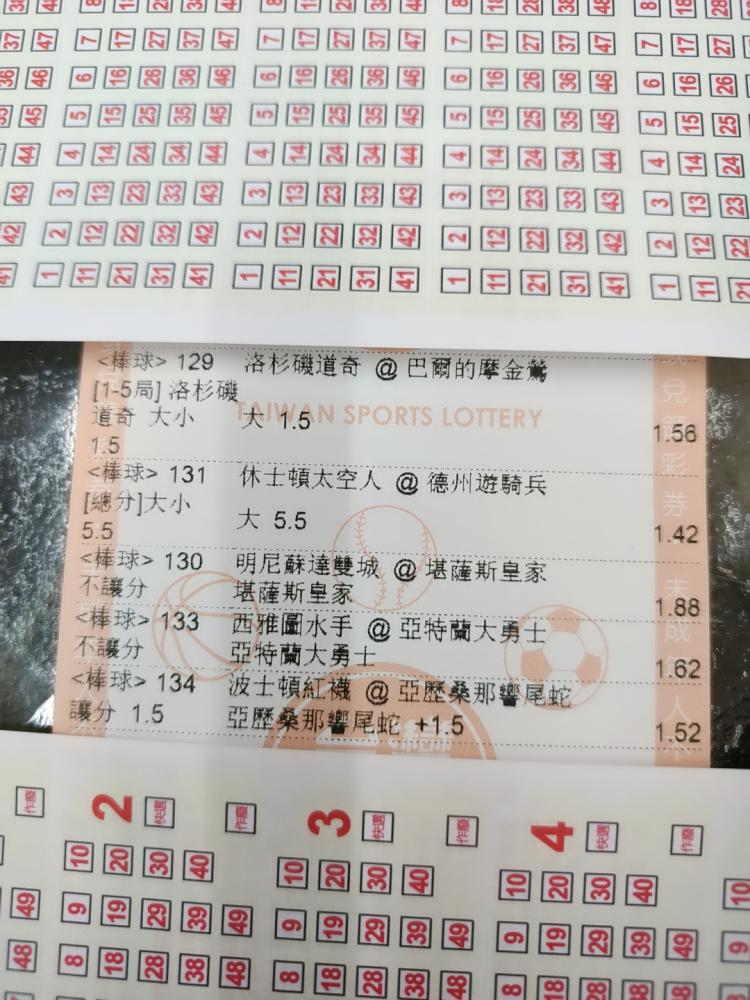 8 18 28 8 18 28 38 48 8 18 28 38 48 8 18 28
37 47 7 17 27 37 47 7 17 27 37 47 7 17 27 37 47 7 17 27
36 46 6 16 26 36 46 6 16 26 36 46 6 16 26 36 46 6 16 26
35 45 5 15 25 35 45 5 15 25 35 45 5 15 25 35 45 5 15 25
44 4 14 24 34 44 4 14 24 34 44 4 14 24 34 44 4 14 24
43 3 13 23 33 43 3 13 23 33 43 3 13 23 33 43 3 13 23
42 2 12 22 32 42 2 12 22 32 42 2 12 22 32 42 2 12 22
41 1 11 21 31 41 1 11 21 31 41 1 11 21 31 41 1 11 21
<棒球> 129 洛杉磯道奇 @ 巴爾的摩金鶯
[1-5局] 洛杉磯
道奇 大小 大 1.5
TAIWAN SPORTS LOTTERY
1.5 1.56
<棒球> 131 休士頓太空人 @ 德州遊騎兵
[總分]大小 大 5.5
5.5 1.42
<棒球> 130 明尼蘇達雙城 @ 堪薩斯皇家
不讓分 堪薩斯皇家 1.88
<棒球> 133 西雅圖水手 @ 亞特蘭大勇士
不讓分 亞特蘭大勇士 1.62
<棒球> 134 波士頓紅襪 @ 亞歷桑那響尾蛇
讓分 1.5 亞歷桑那響尾蛇 +1.5 1.52
彩券
未成
人不
作廢 2 快選 作廢 3 快選 作廢 4 快選 作廢
10 20 30 40 10 20 30 40 10 20 30 40 10
49 9 19 29 39 49 9 19 29 39 49 9 19 29 39 49 9
48 8 18 28 38 48 8 18 28 38 48 8 18 28 38 48 8